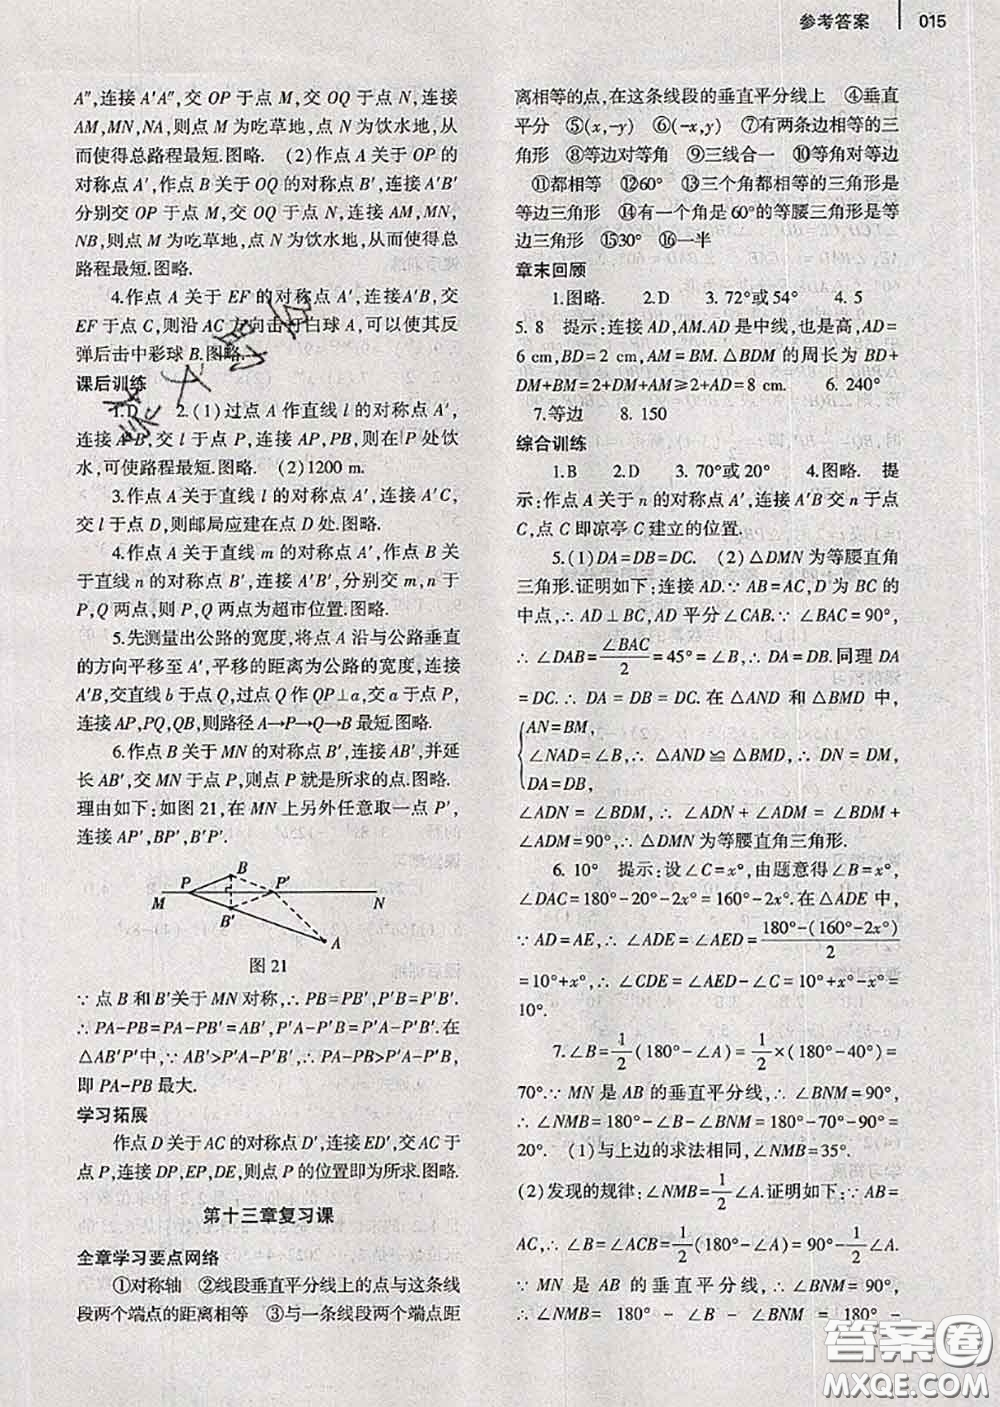 参考答案 015
A″,连接 A′A″,交 OP 于点 M,交 OQ 于点 N,连接
AM,MN,NA,则点 M 为吃草地,点 N 为饮水地,从
而使得总路程最短.图略. (2)作点 A 关于 OP 的
对称点 A′,作点 B 关于 OQ 的对称点 B′,连接 A′B′
分别交 OP 于点 M,交 OQ 于点 N,连接 AM,MN,
NB,则点 M 为吃草地,点 N 为饮水地,从而使得总
路程最短.图略.
4.作点 A 关于 EF 的对称点 A′,连接A′B,交
EF 于点 C,则沿 AC 方向击打白球 A,可以使其反
弹后击中彩球 B.图略.
课后训练
1.D 2.(1)过点 A 作直线 l 的对称点 A′,
连接 A′B,交 l 于点 P,连接 AP,PB,则在 P 处饮
水,可使路程最短.图略. (2)1200 m.
3.作点 A 关于直线 l 的对称点 A′,连接 A′C,
交 l 于点 D,则邮局应建在点 D 处.图略.
4.作点 A 关于直线 m 的对称点 A′,作点 B 关
于直线 n 的对称点 B′,连接 A′B′,分别交 m,n 于
P,Q 两点,则 P,Q 两点为超市位置.图略.
5.先测量出公路的宽度,将点 A 沿与公路垂直
的方向平移至 A′,平移的距离为公路的宽度,连接
A′B,交直线 b 于点 Q,过点 Q 作 QP⊥a,交 a 于点 P,
连接 AP,PQ,QB,则路径 A→P→Q→B 最短.图略.
6.作点 B 关于 MN 的对称点 B′,连接 AB′,并延
长 AB′,交 MN 于点 P,则点 P 就是所求的点.图略.
理由如下:如图 21,在 MN 上另外任意取一点 P′,
连接 AP′,BP′,B′P′.
B
P P′
M N
B′
A
图 21
∵ 点 B 和 B′关于 MN 对称,∴ PB=PB′,P′B=P′B′.
∴ PA-PB=PA-PB′=AB′,P′A-P′B=P′A-P′B′.在
△AB′P′中,∵ AB′>P′A-P′B′,∴ PA-PB>P′A-P′B,
即 PA-PB 最大.
学习拓展
作点 D 关于 AC 的对称点 D′,连接 ED′,交 AC 于
点 P,连接 DP,EP,DE,则点 P 的位置即为所求.图略.
第十三章复习课
全章学习要点网络
①对称轴 ②线段垂直平分线上的点与这条线
段两个端点的距离相等 ③与一条线段两个端点距
离相等的点,在这条线段的垂直平分线上 ④垂直
平分 ⑤(x,-y) ⑥(-x,y) ⑦有两条边相等的三
角形 ⑧等边对等角 ⑨三线合一 ⑩等角对等边
⑪都相等 ⑫60° ⑬三个角都相等的三角形是
等边三角形 ⑭有一个角是 60°的等腰三角形是等
边三角形 ⑮30° ⑯一半
章末回顾
1.图略. 2.D 3.72°或 54° 4.5
5.8 提示:连接 AD,AM.AD 是中线,也是高,AD=
6 cm,BD=2 cm,AM=BM.△BDM 的周长为 BD+
DM+BM=2+DM+AM≥2+AD=8 cm. 6.240°
7.等边 8.150
综合训练
1.B 2.D 3.70°或 20° 4.图略. 提
示:作点 A 关于 n 的对称点 A′,连接 A′B 交 n 于点
C,点 C 即凉亭 C 建立的位置.
5.(1)DA=DB=DC. (2)△DMN 为等腰直角
三角形.证明如下:连接 AD.∵ AB=AC,D 为 BC 的
中点,∴ AD⊥BC,AD 平分∠CAB.∵ ∠BAC=90°,
∴ ∠DAB=∠BAC/2=45°=∠B,∴ DA=DB.同理 DA
=DC.∴ DA=DB=DC.在 △AND 和 △BMD 中,
AN=BM,
∠NAD=∠B,∴ △AND≌△BMD,∴ DN=DM,
DA=DB,
∠ADN=∠BDM,∴ ∠ADN+∠ADM=∠BDM+
∠ADM=90°,∴ △DMN 为等腰直角三角形.
6.10° 提示:设∠C=x°,由题意得∠B=x°,
∠DAC=180°-20°-2x°=160°-2x°.在△ADE 中,
∵ AD=AE,∴ ∠ADE=∠AED=180°-(160°-2x°)/2
=10°+x°,∴ ∠CDE=∠AED-∠C=10°+x°-x°=
10°.
7.∠B=1/2(180°-∠A)=1/2×(180°-40°)=
70°.∵ MN 是 AB 的垂直平分线,∴ ∠BNM=90°,
∴ ∠NMB=180°-∠B-∠BNM=180°-70°-90°=
20°. (1)与上边的求法相同,∠NMB=35°.
(2)发现的规律:∠NMB=1/2∠A.证明如下:∵ AB=
AC,∴ ∠B=∠ACB=1/2(180°-∠A)=90°-1/2∠A.
∵ MN 是 AB 的垂直平分线,∴ ∠BNM=90°,
∴ ∠NMB= 180° - ∠B - ∠BNM = 180° -
答案圈
MXQE.COM